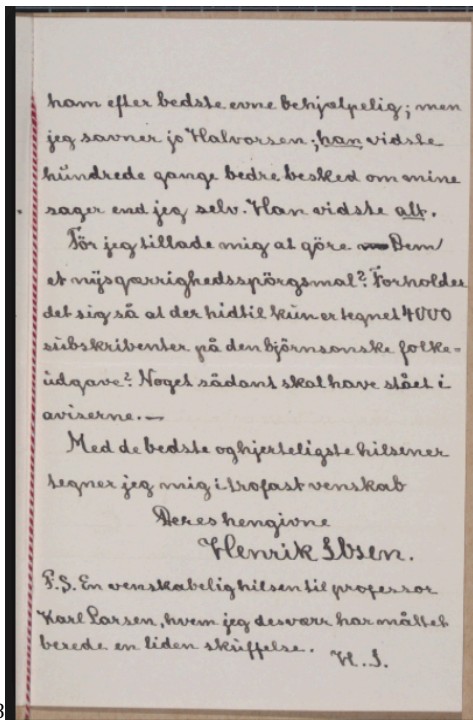 ham efter bedste evne behjælpelig; men
jeg savner jo Halvorsen; han vidste
hundrede gange bedre besked om mine
sager end jeg selv. Han vidste alt.
Tör jeg tillade mig at göre Dem
et nysgærrighedsspörgsmål? Forholder
det sig så at der hidtil kun er tegnet 4000
subskribenter på den björnsonske folke=
udgave? Noget sådant skal have stået i
aviserne. —
Med de bedste og hjerteligste hilsener
tegner jeg mig i trofast venskab
Deres hengivne
Henrik Ibsen.
P.S. En venskabelig hilsen til professor
Karl Larsen, hvem jeg desværr har måttet
berede en liden skuffelse.
H. I.
3